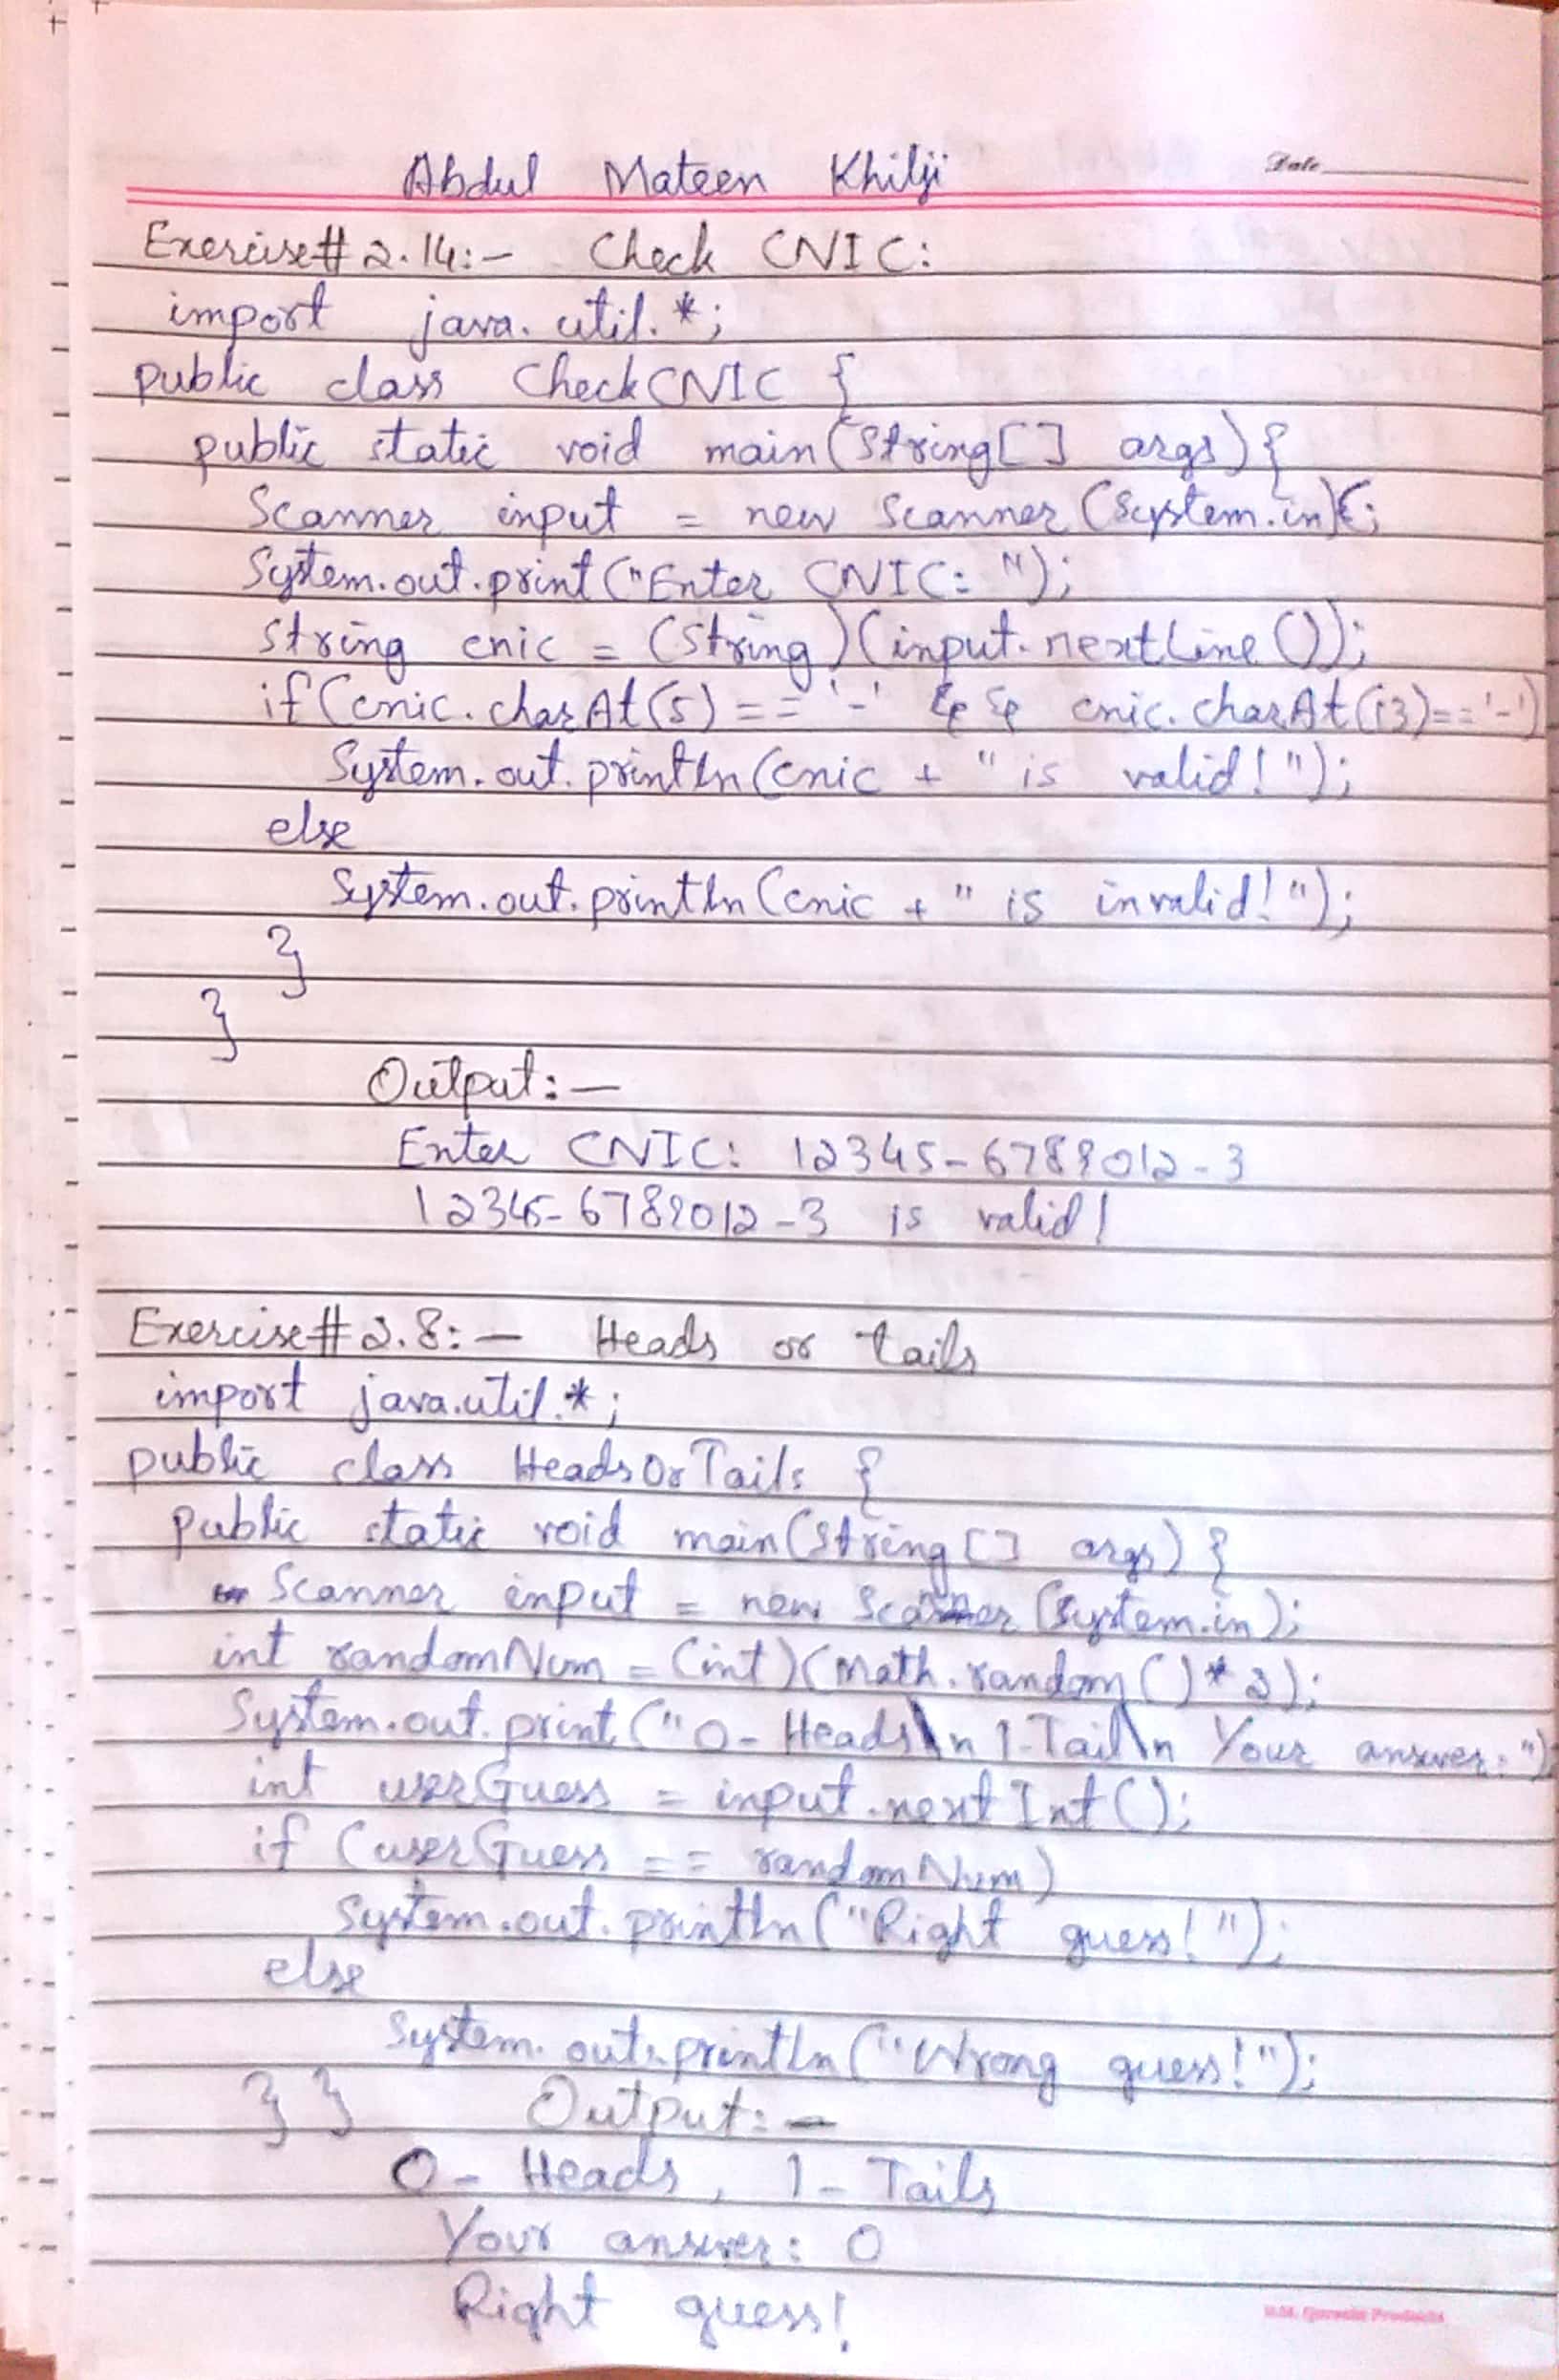 Abdul Mateen Khilji
Date
Exercise# 2.14:- Check CNIC:
import java.util.*;
public class CheckCNIC {
public static void main(String[] args){
Scanner input = new Scanner(System.in);
System.out.print("Enter CNIC: ");
String cnic = (String)(input.nextLine());
if(cnic.charAt(5)=='-' && cnic.charAt(13)=='-')
System.out.println(cnic + " is valid!");
else
System.out.println(cnic + " is invalid!");
}
}
Output:-
Enter CNIC: 12345-6789012-3
12345-6789012-3 is valid!
Exercise# 2.8:- Heads or tails
import java.util.*;
public class HeadsOrTails {
public static void main(String[] args) {
Scanner input = new Scanner(System.in);
int randomNum = (int)(Math.random()*2);
System.out.print("0- Heads\n 1-Tail\n Your answer:")
int userGuess = input.nextInt();
if (userGuess == randomNum)
System.out.println("Right guess!");
else
System.out.println("Wrong guess!");
} } Output:-
0- Heads, 1- Tails
Your answer: 0
Right guess!